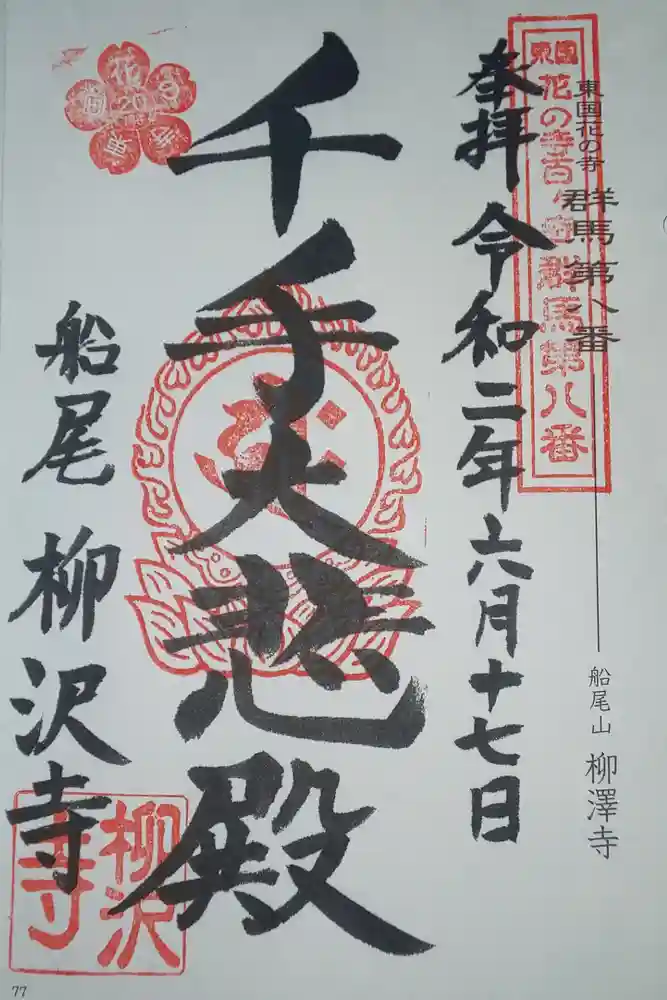 東国花の寺
群馬第八番
船尾山
柳澤寺
東国
花の寺百ヶ寺群馬第八番
奉拝
令和二年六月十七日
千手大悲殿
船尾
柳沢寺
柳沢
寺
花の寺
東国
20
77